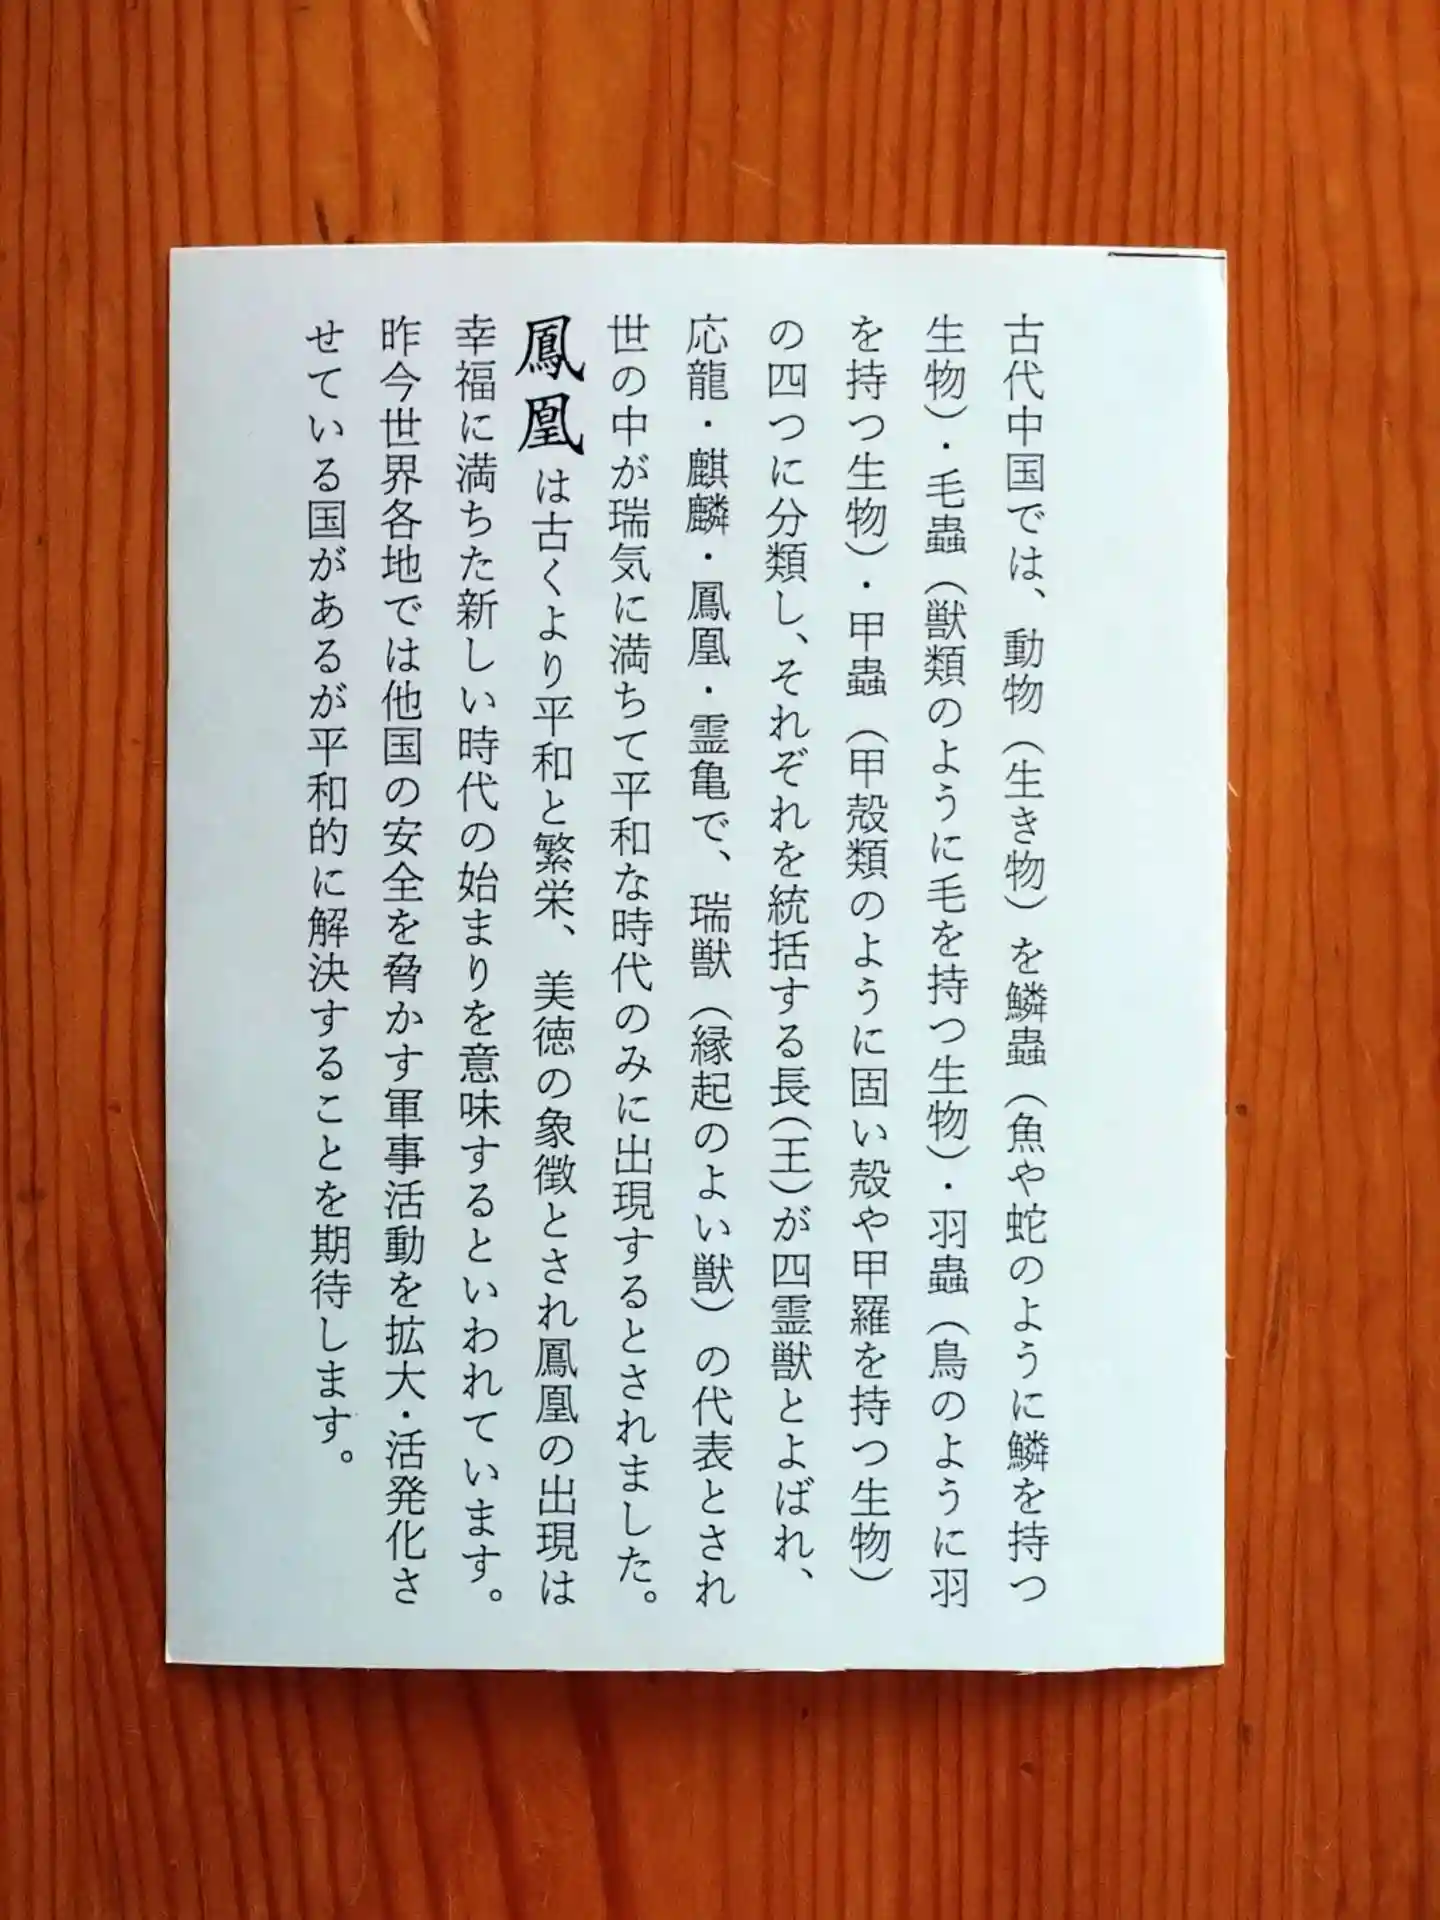 古代中国では、動物（生き物）を鱗蟲（魚や蛇のように鱗を持つ
生物）・毛蟲（獣類のように毛を持つ生物）・羽蟲（鳥のように羽
を持つ生物）・甲蟲（甲殻類のように固い殻や甲羅を持つ生物）
の四つに分類し、それぞれを統括する長（王）が四霊獣とよばれ、
応龍・麒麟・鳳凰・霊亀で、瑞獣（縁起のよい獣）の代表とされ
世の中が瑞気に満ちて平和な時代のみに出現するとされました。
鳳凰は古くより平和と繁栄、美徳の象徴とされ鳳凰の出現は
幸福に満ちた新しい時代の始まりを意味するといわれています。
昨今世界各地では他国の安全を脅かす軍事活動を拡大・活発化さ
せている国があるが平和的に解決することを期待します。